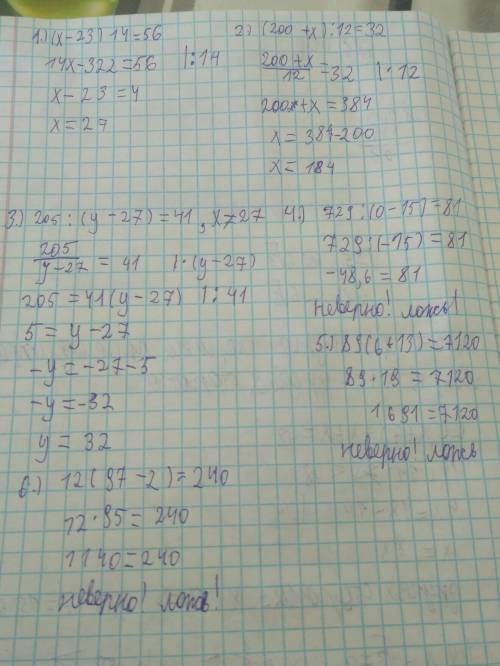 1.) (x-23) 14=56
14x-322=56 |:14
x-23=4
x=27
2) (200+x):12=32
200+x
12
=32 |·12
200x+x=384
x=384-200
x=184
3.) 205:(y-27)=41, x≠27
205
y-27
= 41 |·(y-27)
205=41(y-27) |:41
5=y-27
-y=-27-5
-y=-32
y=32
4.) 729:(0-15)=81
729:(-15)=81
-48,6=81
неверно! ложь!
5.) 89(6+13)=7120
89·19=7120
1691=7120
неверно! ложь
6.) 12(97-2)=240
12·95=240
1140=240
неверно! ложь!